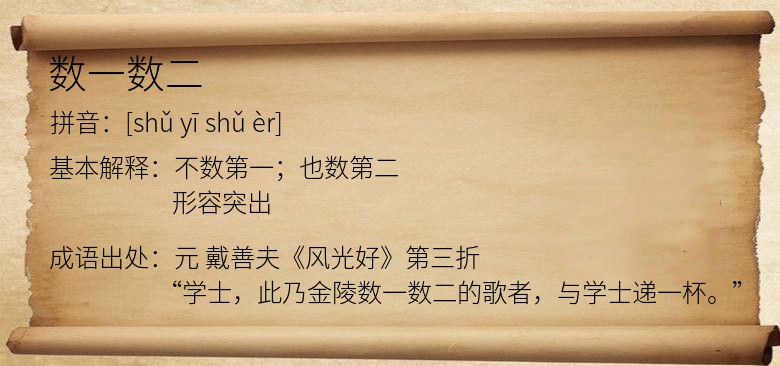 数一数二
拼音：[shǔ yī shǔ èr]
基本解释：不数第一；也数第二
形容突出
成语出处：元 戴善夫《风光好》第三折
“学士，此乃金陵数一数二的歌者，与学士递一杯。”